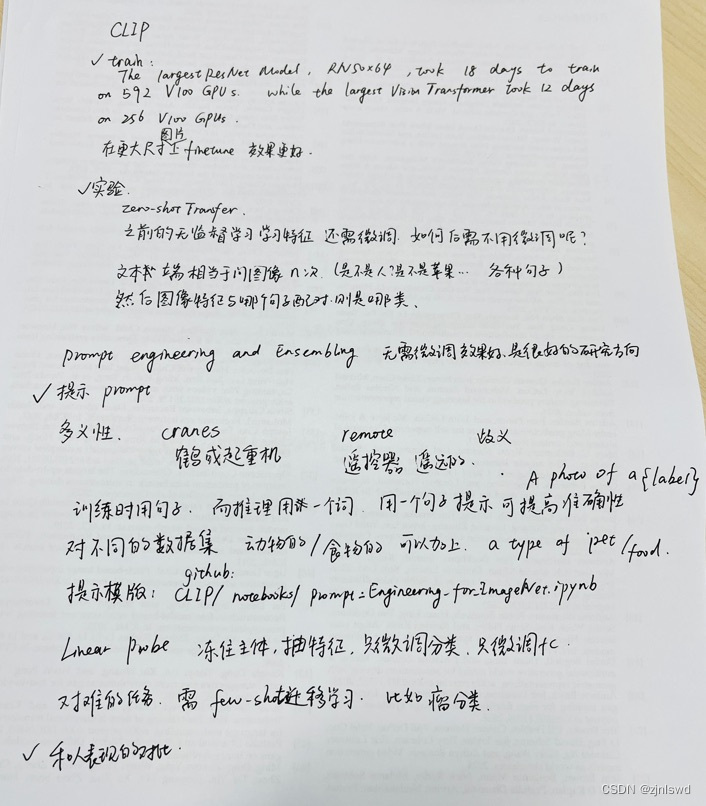 CLIP
✓ train:
The largest ResNet Model, RN50x64, took 18 days to train
on 592 V100 GPUs. while the largest Vision Transformer took 12 days
on 256 V100 GPUs.
图片
在更大尺寸上finetune 效果更好.
✓实验.
zero-shot Transfer.
之前的无监督学习学习特征 还需微调. 如何后需不用微调呢?
文本 端相当于问图像n次.(是不是人?是不是苹果... 各种句子)
然后图像特征与哪个句子配对.则是哪类.
prompt engineering and Ensembling 无需微调效果好.是很好的研究方向
✓ 提示 prompt
多义性. cranes remote 歧义
鹤或起重机 遥控器 遥远的.
A photo of a {label}
训练时用句子. 而推理用 一个词. 用一个句子提示可提高准确性
对不同的数据集 动物的/食物的 可以加上. a type of pet/food.
github:
提示模版: CLIP/notebooks/prompt_Engineering_for_ImageNet.ipynb
Linear Probe 冻住主体,抽特征,只微调分类.只微调fc.
对难的任务. 需 few-shot迁移学习. 比如 瘤分类.
✓ 和人表现的对比.
CSDN @zjnlswd